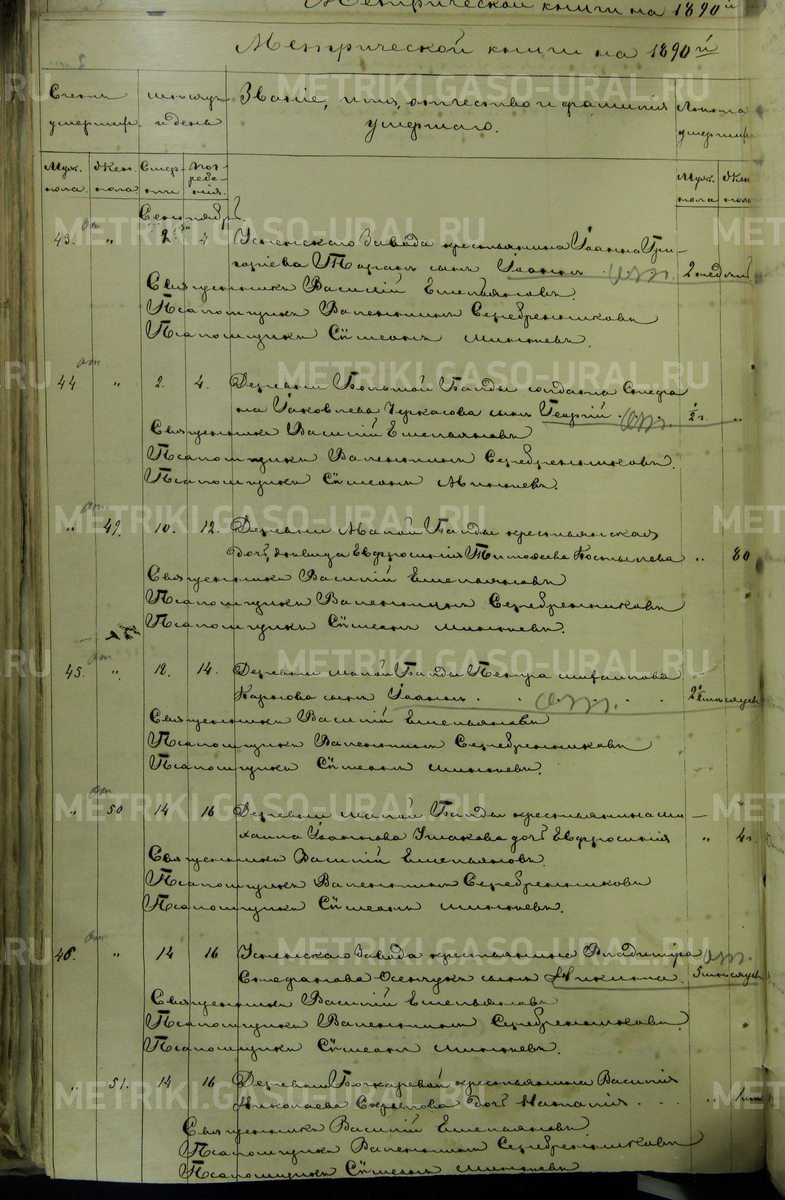 Метрической книги на 1890й
Метрической книги на 1890й
Счетъ умершихъ.
Мѣсяцъ и день
Званіе, имя, отчество и фамилія умершаго.
Лѣта умершихъ
Муж. пола.
Жен. пола.
Смерти
Погребенія.
Муж. пола
Жен. пола
Сентябрь.
43. " 2 4 Успенскаго Завода крестьянина Іоанна Гри-
горіева Таранъ сынъ Іоаннъ 2 недѣли
Священникъ Василій Емельяновъ.
Псаломщикъ Валентинъ Серебренниковъ
Псаломщикъ Сѵмеонъ
44 " 2. 4. Деревни Большой Балды солдата Стефа
на Іаковлева Черкасова сынъ Георгій ½ г. "
Священникъ Василій Емельяновъ
Псаломщикъ Валентинъ Серебренниковъ.
Псаломщикъ Сѵмеонъ
" 49. 10. 12. Деревни Малой Балды крестьянская
дочь, дѣвица Евфросинія Тимоѳеева " 80
Священникъ Василій Емельяновъ
Псаломщикъ Валентинъ Серебренниковъ
Псаломщикъ Сѵмеонъ
45. " 12. 14. Деревни Малой Балды Петра Михаилова
Карпова сынъ Іоаннъ 2½ мѣсяцевъ
Священникъ Василій Емельяновъ
Псаломщикъ Валентинъ Серебренниковъ
Псаломщикъ Сѵмеонъ
" 50 14 16 Деревни Малой Балды крестьянина Ми-
хаила Іоаннова Ушакова дочь Евфросинія " 4 г.
Священникъ Василій Емельяновъ.
Псаломщикъ Валентинъ Серебренниковъ
Псаломщикъ Сѵмеонъ
46. " 14 16 Успенскаго Завода крестьянина Владиміра
Стефанова сынъ Никита. 5 мѣсяцевъ
Священникъ Василій Емельяновъ
Псаломщикъ Валентинъ Серебренниковъ
Псаломщикъ Сѵмеонъ
" 51. 14 16 Деревни Бочкаревой крестьянина Василія
Николаева дочь Наталія "
Священникъ Василій Емельяновъ
Псаломщикъ Валентинъ Серебренниковъ
Псаломщикъ Сѵмеонъ
METRIKI.GASO-URAL.RU